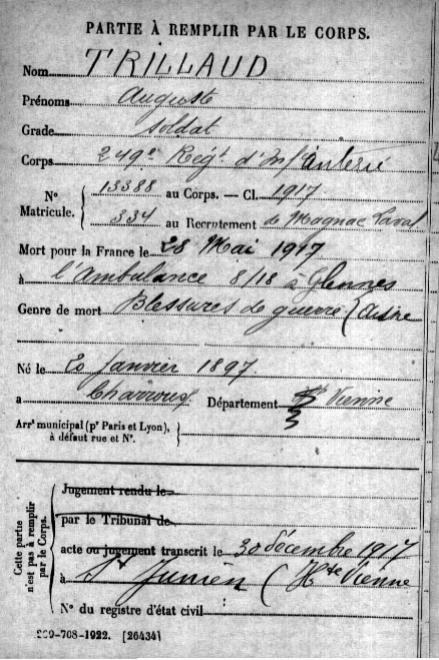 PARTIE À REMPLIR PAR LE CORPS.
Nom TRILLAUD
Prénoms Auguste
Grade soldat
Corps 249e Régt d'Infanterie
N° Matricule. 13388 au Corps. — Cl. 1917
334 au Recrutement de Magnac Laval
Mort pour la France le 28 Mai 1917
à l'ambulance 8/18 à Glennes
Genre de mort Blessures de guerre (Aisne
Né le 20 Janvier 1897
a Charroux Département Vienne
Arrt municipal (pr Paris et Lyon), à défaut rue et N°.
Cette partie n'est pas à remplir par le Corps.
Jugement rendu le
par le Tribunal de
acte ou jugement transcrit le 30 décembre 1917
à St Junien (Hte Vienne
N° du registre d'état civil
-708-1922. [26434]